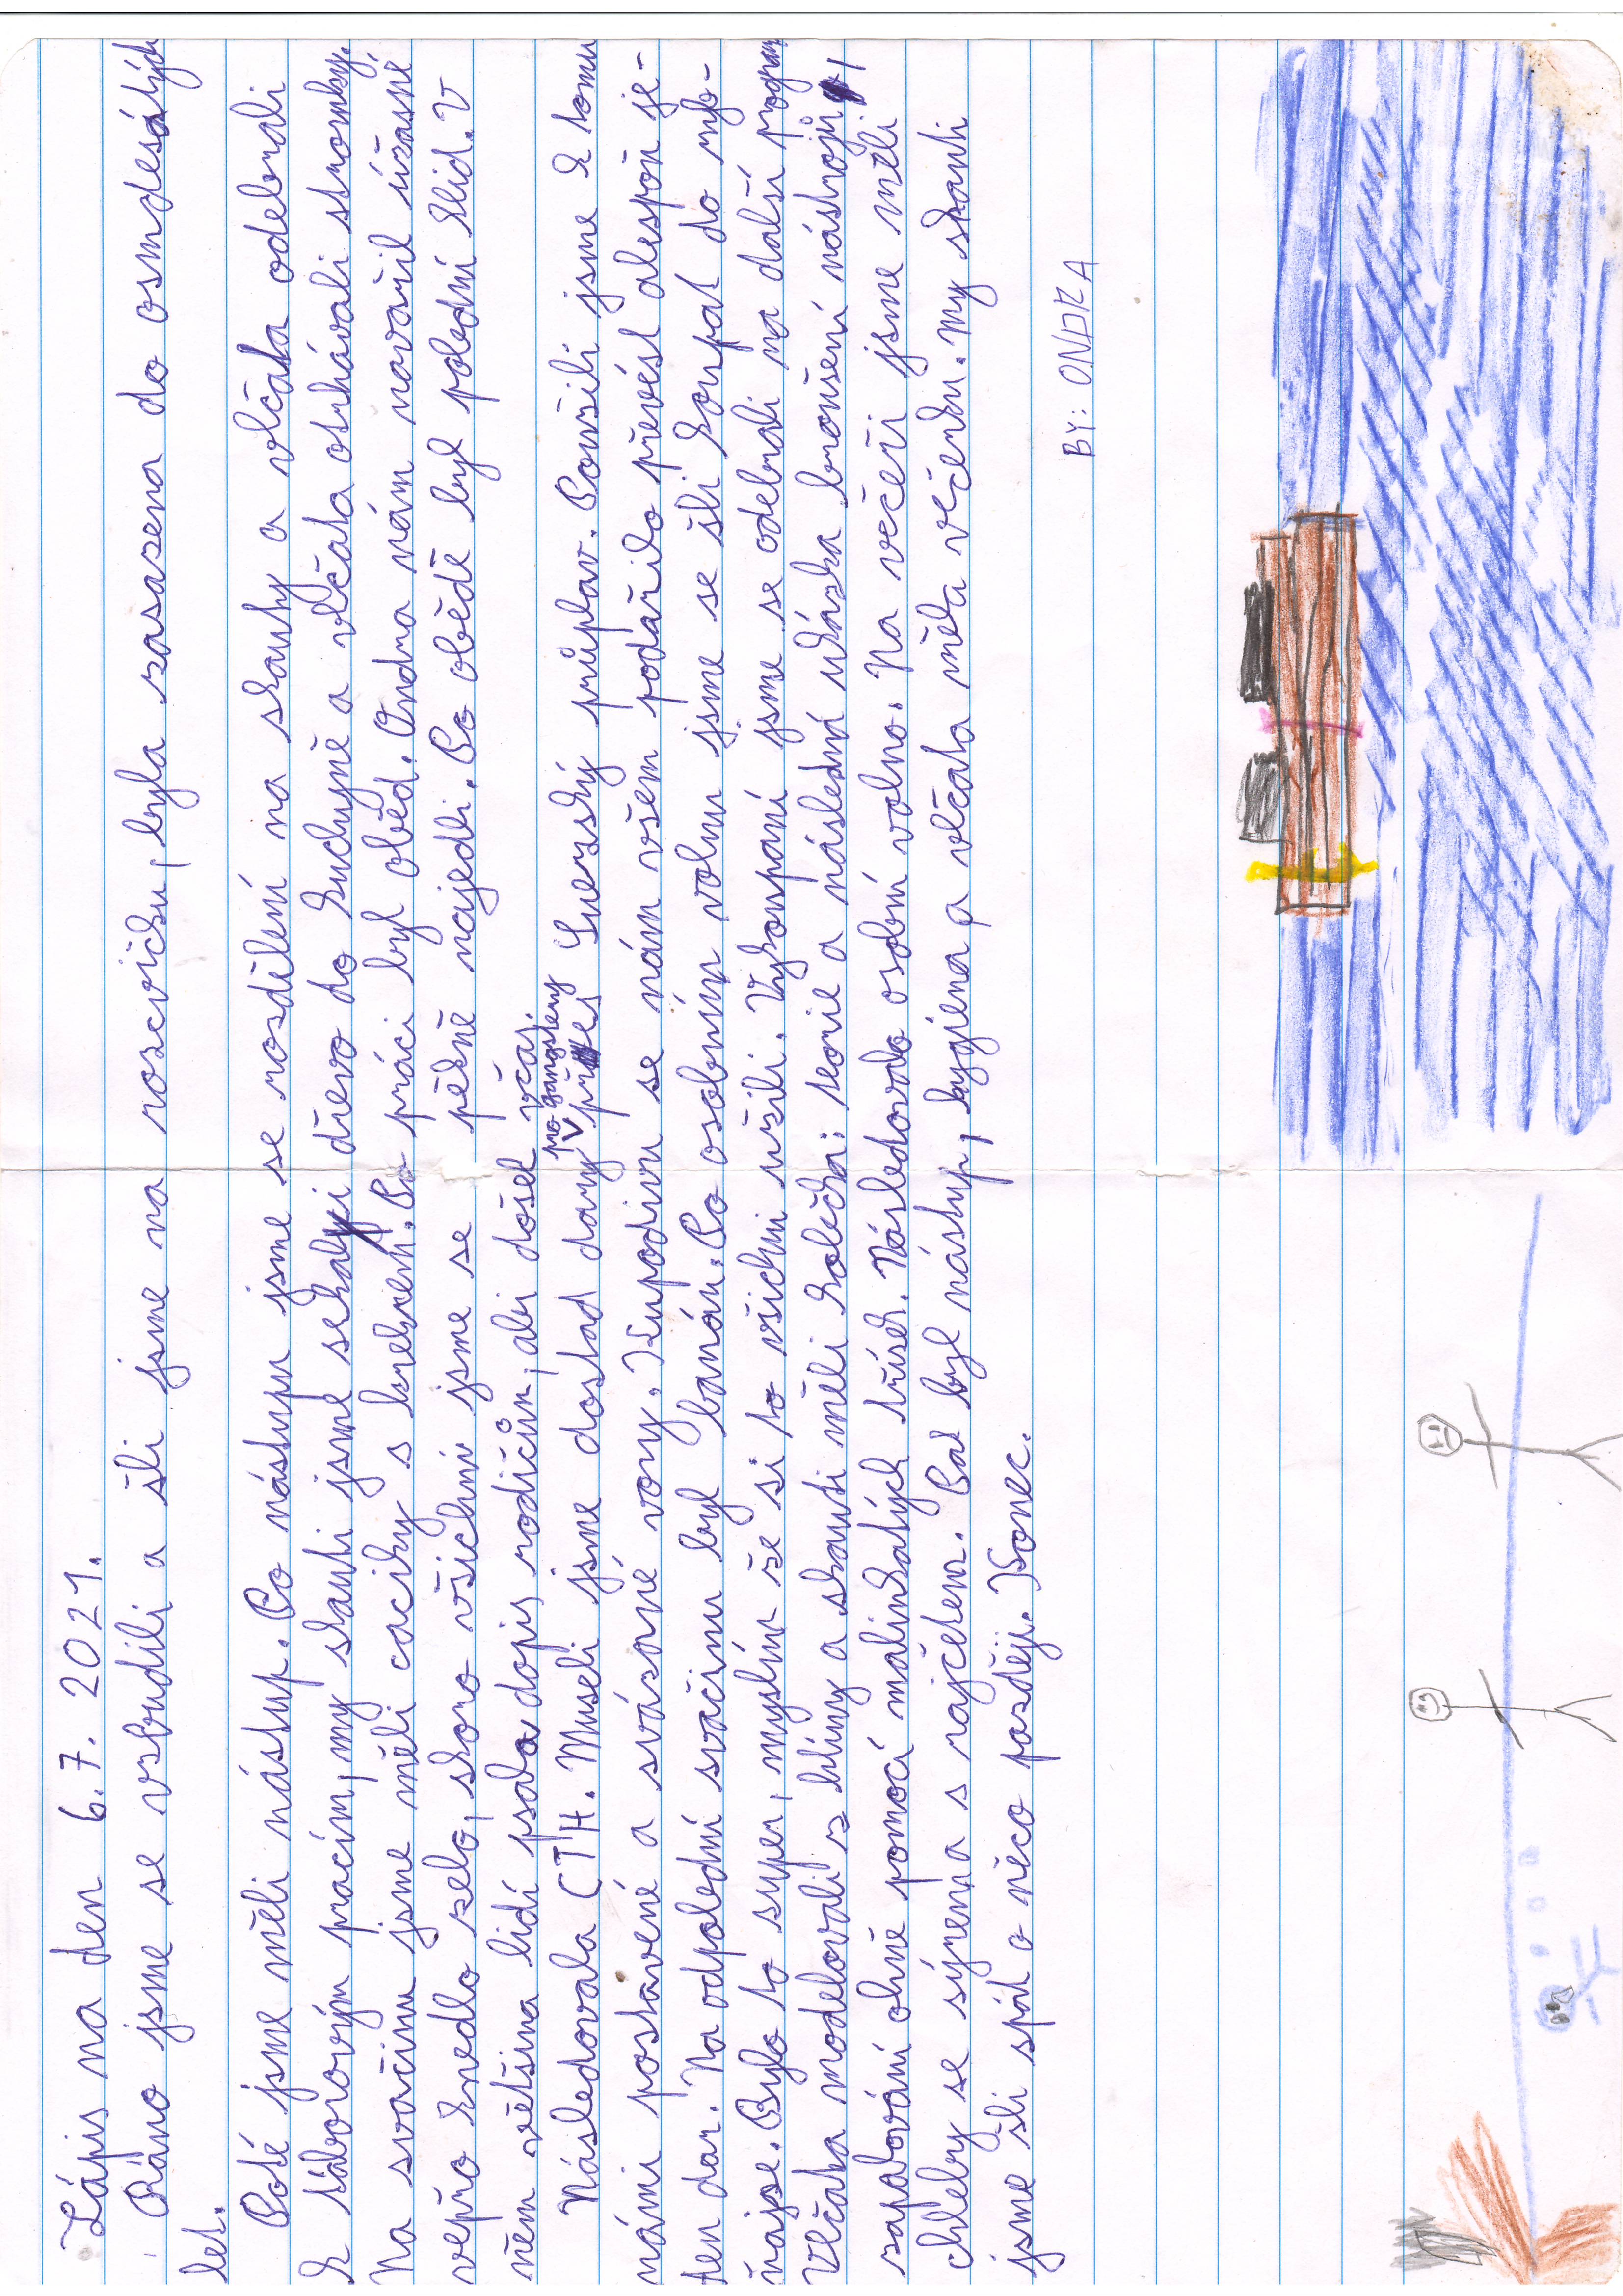 Zápis na den 6. 7. 2021.
Ráno jsme se vzbudili a šli jsme na rozcvičku, byla zasazena do osmdesátých
let.
Poté jsme měli nástup. Po nástupu jsme se rozdělení na skauty a vlčata odebrali
k táborovým pracím, my skauti jsme sekali dřevo do kuchyně a vlčata ostrhávali stromky.
Na svačinu jsme měli caciky s knekem. Po práci byl oběd. Ondra nám navařil úžasné
vepřo knedlo zelo, skoro všichni jsme se pěkně najedli. Po obědě byl polední klid. V
něm většina lidí psala dopis rodičům, abi došel včas.
Následovala CTH. Museli jsme dostad dary pro gangstery přes Suezský průplav. Použili jsme k tomu
námi postavené a svázané vory. Kupodivu se nám všem podařilo převést alespoň je-
den dar. Na odpolední svačinu byl banán. Po osobním volnu jsme se šli koupat do ryb-
ňajze. Bylo to super, myslím že si to všichni užili. Vykoupaní jsme se odebrali na další program
Vlčata modelovali z hlíny a skauti měli kolečka: teorie a následní ukázka broušení nástrojů,
zapalování ohně pomocí malinkatých třísek. Následovalo osobní volno. Na večeři jsme měli
chleby se sýrem a s rajčetem. Pak byl nástup, hygiena a vlčata měla večerku. My skauti
jsme šli spát o něco později. Konec.
BY: ONDRA